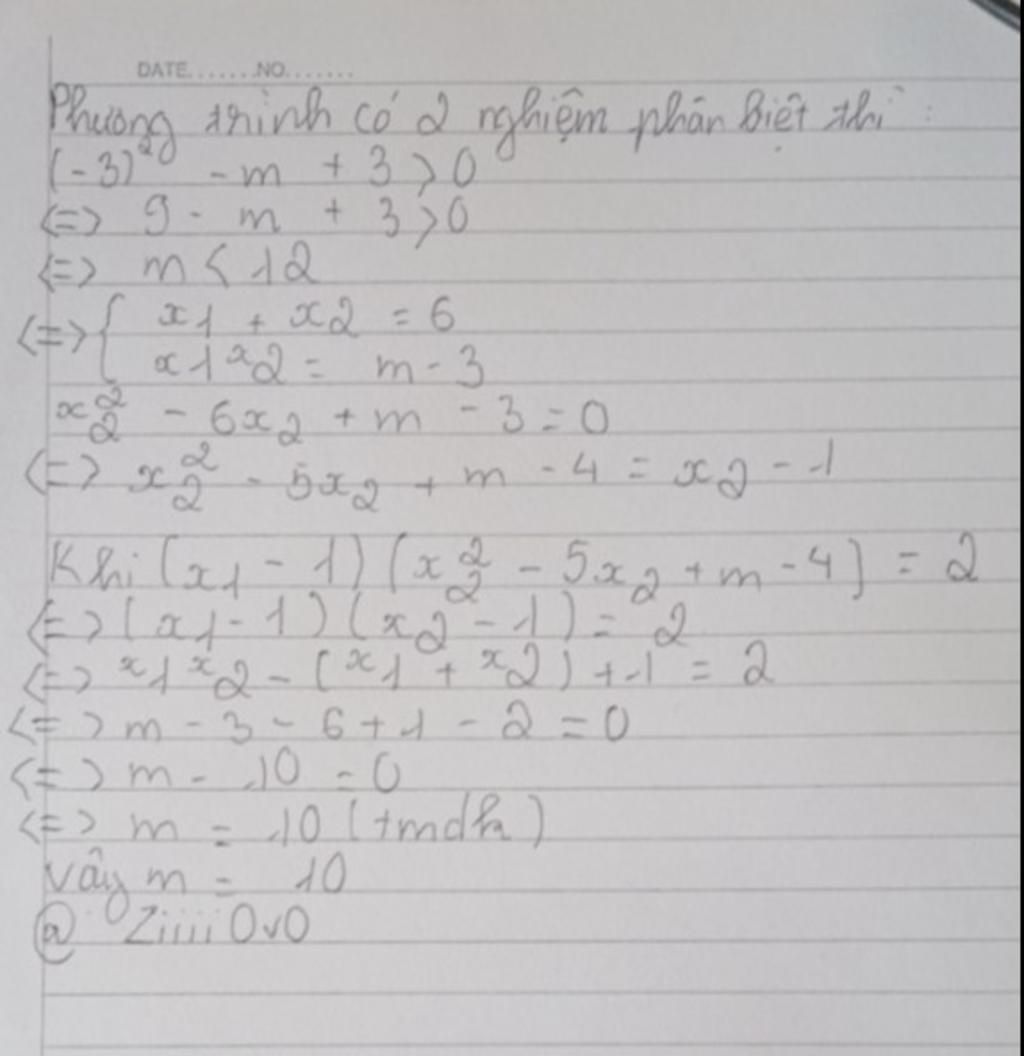 DATE.......NO.......
Phương trình có 2 nghiệm phân biệt thì :
(-3)² - m + 3 > 0
<=> 9 - m + 3 > 0
<=> m < 12
<=> { x1 + x2 = 6
x1x2 = m - 3
x₂² - 6x₂ + m - 3 = 0
<=> x₂² - 5x₂ + m - 4 = x₂ - 1
Khi (x₁ - 1)(x₂² - 5x₂ + m - 4) = 2
<=> (x₁ - 1)(x₂ - 1) = 2
<=> x1x2 - (x1 + x2) + 1 = 2
<=> m - 3 - 6 + 1 - 2 = 0
<=> m - 10 = 0
<=> m = 10 (tmdk)
vậy m = 10
@ Ziiii OvO